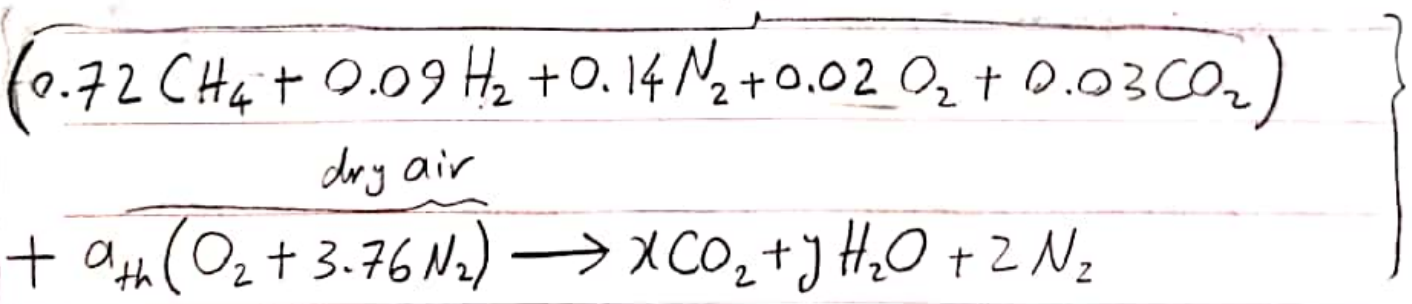 (0.72 CH₄ + 0.09 H₂ + 0.14 N₂ + 0.02 O₂ + 0.03 CO₂)
dry air
+ aₜₕ(O₂ + 3.76 N₂) → xCO₂ + yH₂O + zN₂